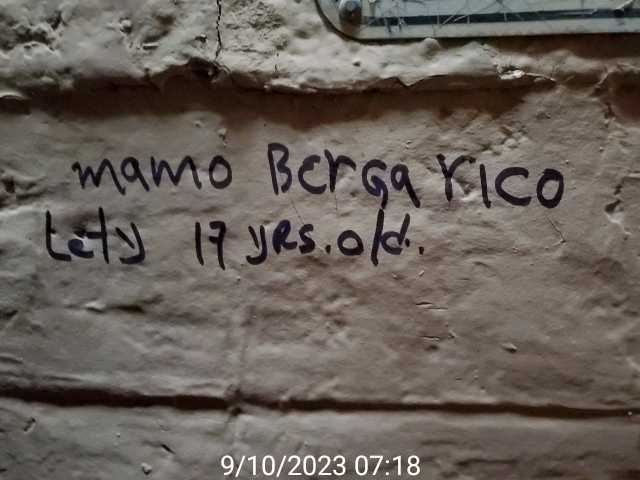 mamo BerGa rico
Lety 17 yRs. old.
9/10/2023 07:18